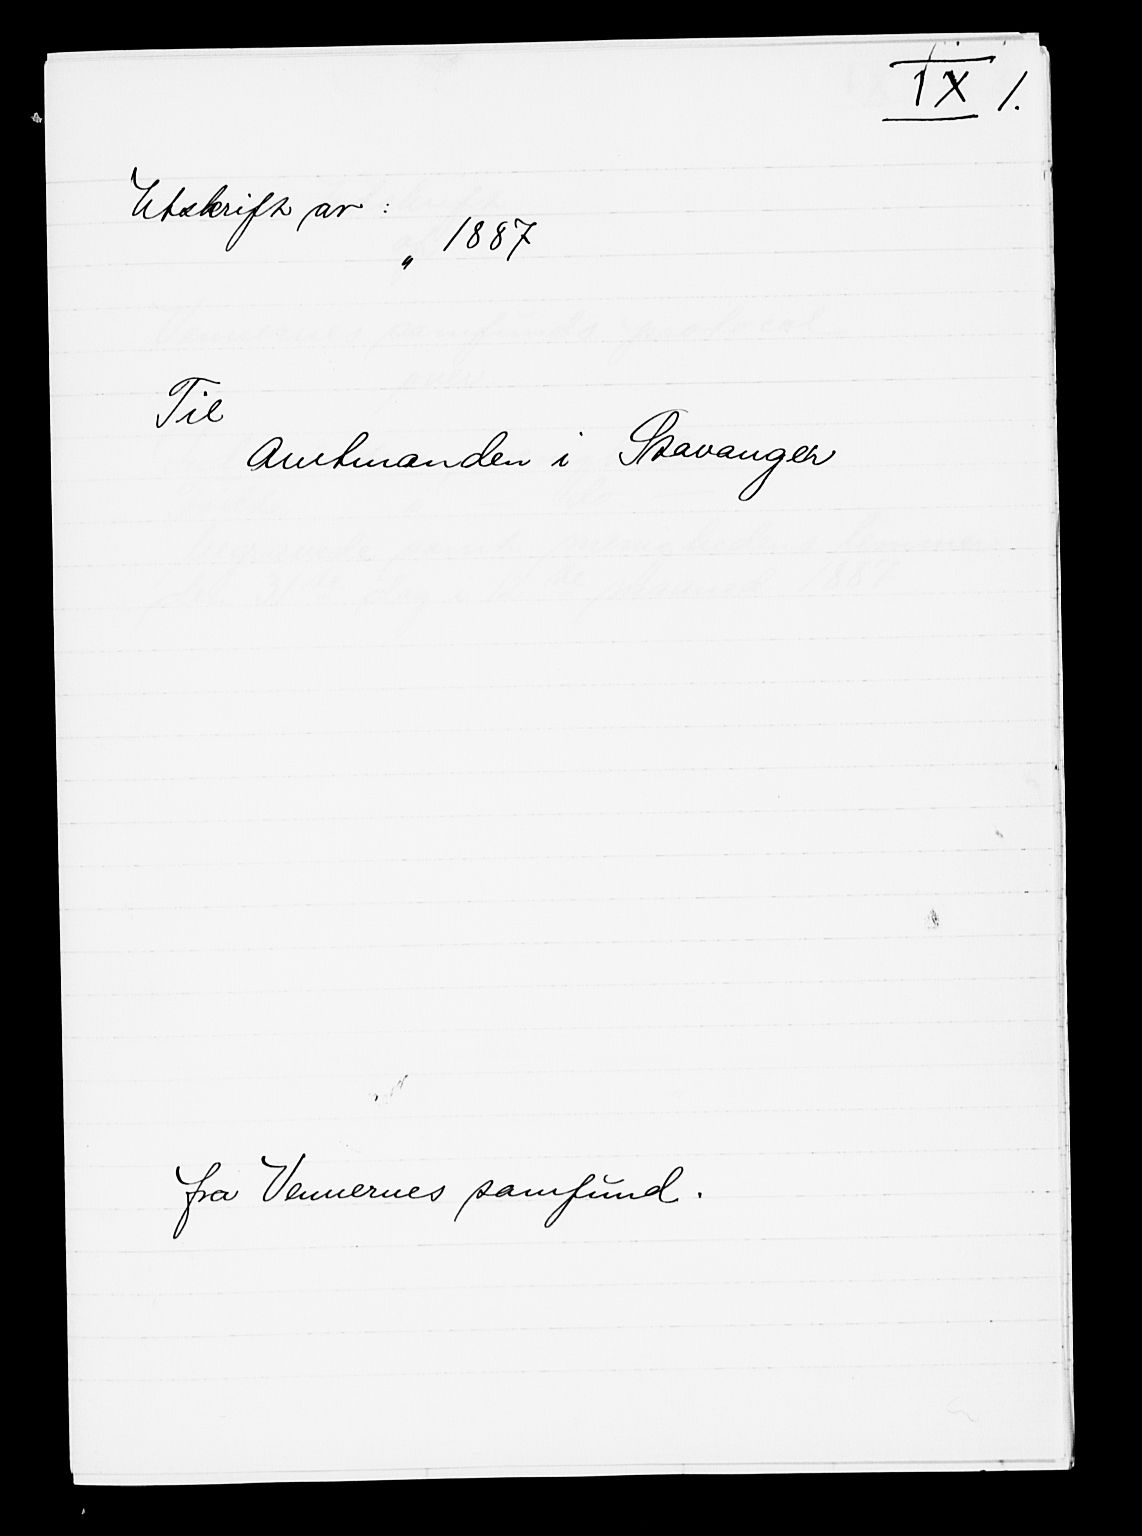 IX 1.
Utskrift av :
„ 1887
Til
Amtmanden i Stavanger
fra Vennernes samfund.